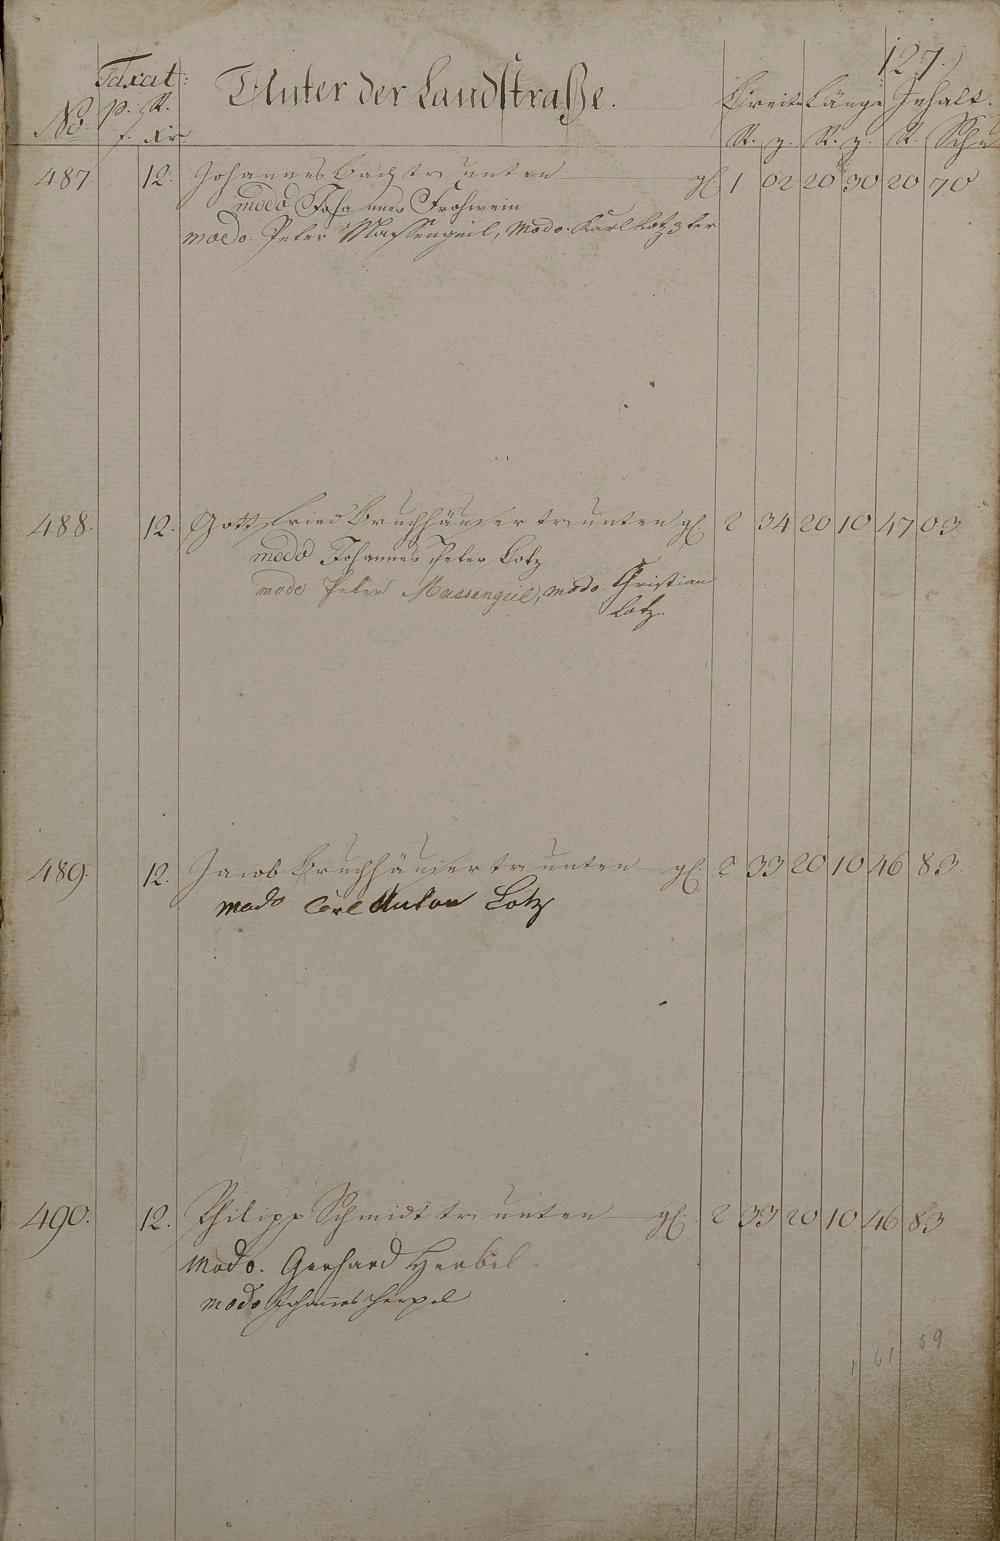 127.
Taxat: Unter der Landstraße.
No. p. R. Breite Länge Inhalt.
f. Xr. R. R. R. Schu
487. 12. Johannes unten gl 1 02 20 30 20 70
modo Johannes Frohwein
modo. Peter Massengeil, modo. Karl Lotz 3ter
488. 12. Gottfried Bruchhäuser tr unten gl. 2 34 20 10 47 03
modo Johannes Peter Lotz
modo Peter Massengeil, modo Christian
Lotz.
489. 12. Jacob Bruchhäuser tr unten gl. 2 33 20 10 46 83
modo Carl Anton Lotz
490. 12. Philipp Schmidt tr unten gl. 2 33 20 10 46 83
modo. Gerhard Herbel
modo Johannes Herpel
1 61 69